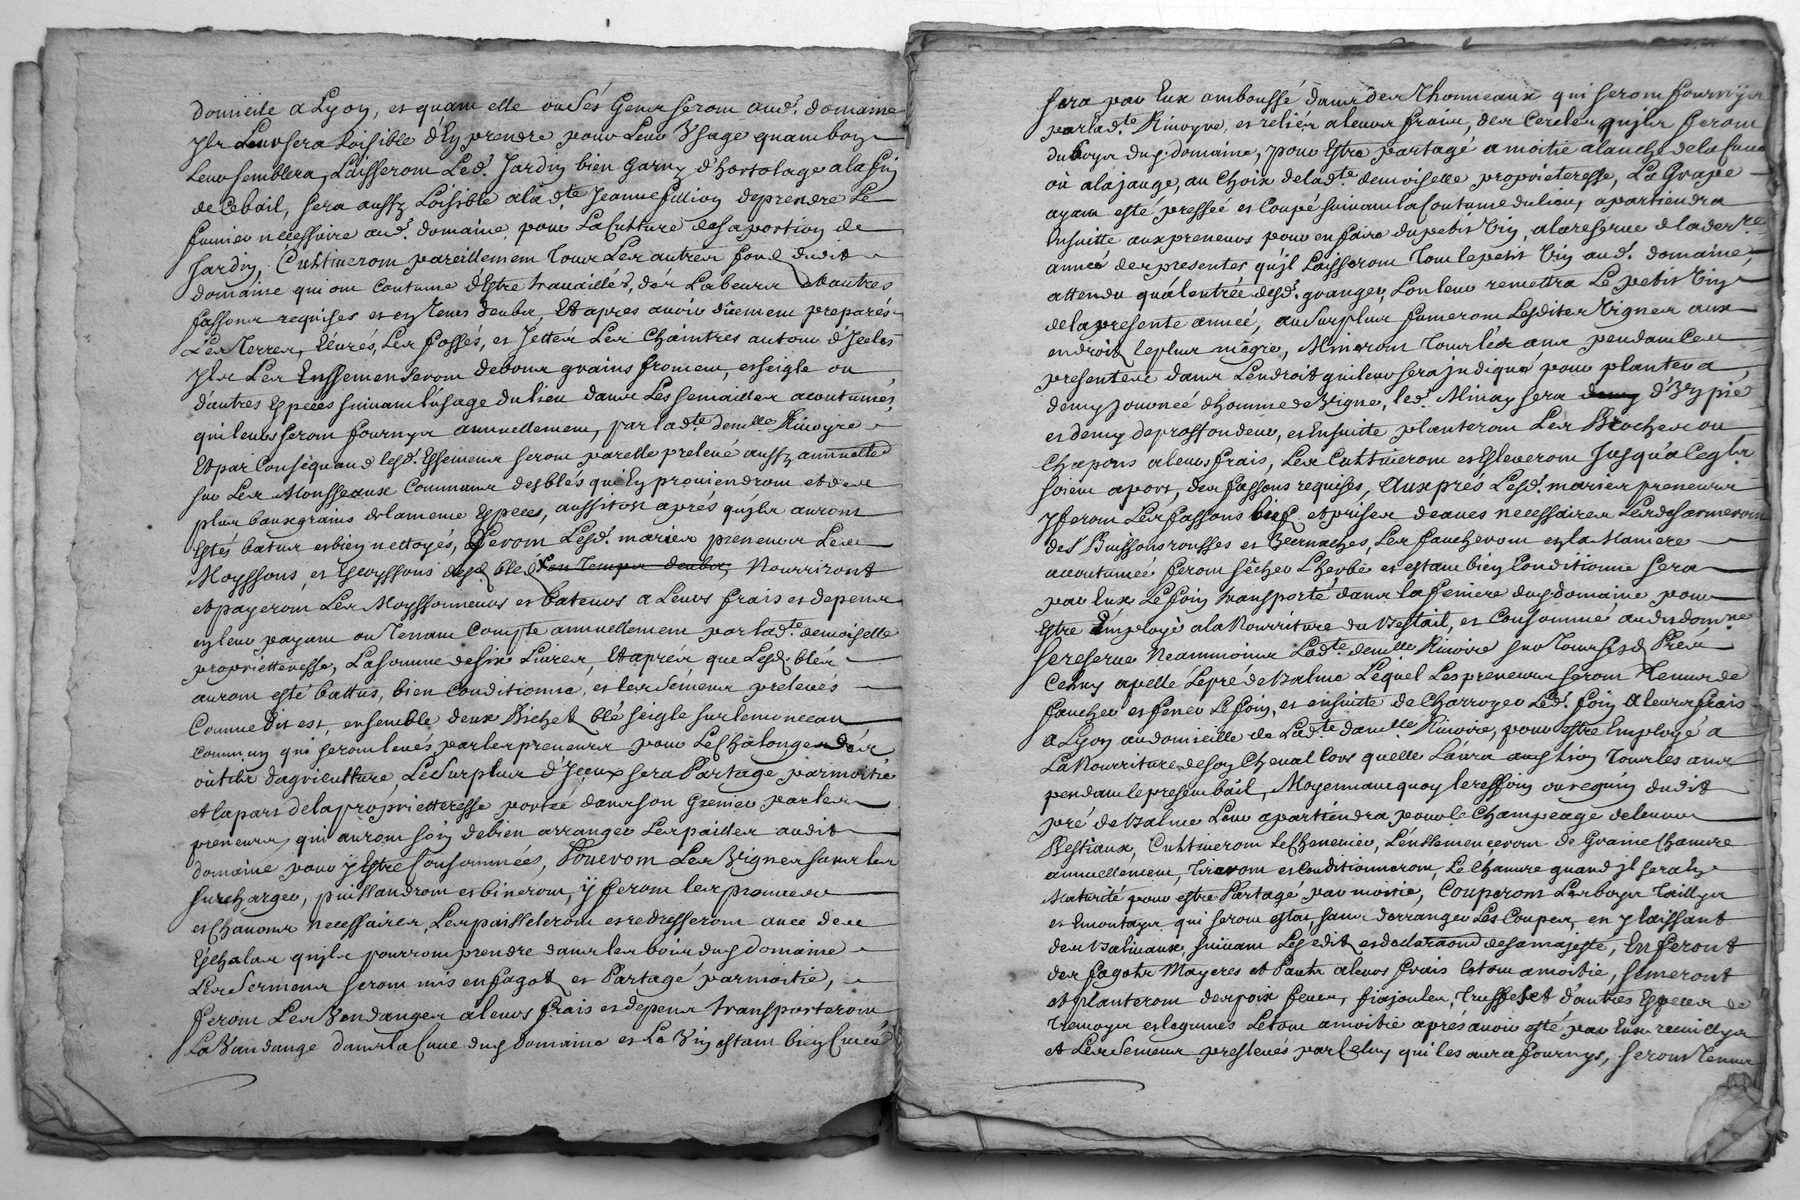 domicile a Lyon, et quant elle ou sés Gens seront aud.t domaine
Jls Leur sera Loisible d'Ey prendre pour Leur Usage quant bon
Leur semblera, Laisseront Led.t Jardin bien Garny d'hortolage a la fin
de ce bail, sera aussy Loisible a la d.te Jeanne fillion de prendre Le
fumier necessaire aud.t domaine pour La Culture de sa portion de
Jardin, Cultiveront pareillement Tous Les autres fond dudit
domaine qui ont coutume d'Estre travaillés, dés Labeurs d'autres
fassons requises et en Tems deubs, Et apres avoir düement preparés
Les Terres, Levrés, Les fossés, et Jettér Les Chaintres autour d'Jcelles
Jls Les Enssemenseront de bons grains froment, et seigle ou
d'autres Especes suivant l'usage du lieu dans Les semailles acoutumés,
qui leurs seront fournys annuellement, par lad.te dem.lle Rivoyre
Et par Conséquand lesd. Essemens seront par elle prelevé aussy annuellet
sur Les Monsseaux Communs des blés qui Ey proviendront et des
plus baux grains de la meme Espece, aussitost aprés quijls auront
Estés batus et bien nettoyés, feront Lesd. mariés preneurs Les
Moyssons, et Escoyssons desd. bled en Temps deubs, Nourriront
et payeront Les Moyssonneurs et bateurs a Leurs frais et depens
en leur payant ou Tenant Compte annuellement par lad.te demoiselle
proprietteresse, La somme de six Livres, Et aprés que Lesd. blés
auront esté battus, bien Conditionné, et les sémens prelevés
Comme dit est, ensemble deux Bichet blé seigle sur le monceau
commun qui seront levés par les preneurs pour Les halonges dés
outils dagriculture, Le Surplus d'Jceux sera Partagé par moitié
et la part de la proprietteresse portée dans son Grenier par les
preneurs, qui auront soin de bien arranger Les pailles audit
domaine pour y Estre Consommées, Fouéront Les Vignes sans les
surcharger, puissandront et bineront, y feront les provins
et Chanons necessaires, Les paisseleront et redresseront avec des
Eschalas quijls pourront prendre dans les bois dud domaine
Les Sermens seront mis en fagot et Partagé par moitié,
feront Les Vendanges a leurs frais et depens transporteront
La Vandange dans la Cuve dud domaine et Le Vin estant bien Cuvé
sera par Eux ambousse dans des Thonneaux qui seront fournys
par lad.te Rivoyre, et reliés a leurs frais, des Cercles quijls feront
du boys dud. domaine, pour Estre partagé a moitié a l'anche de la Cuve
où a la jauge, au Choix de la d.te demoiselle proprieteresse, La Grape
ayant esté presséé et Coupé suivant la Coutume du lieu, apartiendra
Ensuitte aux preneurs pour en faire du petit Vin, a la reserve de la der.re
année des presentes qu'jl Laisseront Tout le petit Vin aud. domaine,
attendu qu'a l'entrée desd. granger, L'on leur remettra Le petit Vin
de la presente année, au Surplus fumeront Lesdites Vignes aux
endroit le plus mêgre, Mineront Tous lés ans pendant les
presentes dans L'endroit qui leur sera jndiqué pour planter a
demy journéé d'homme de Vigne, led. Minay sera d'Un pié
et demy de proffondeur, et Ensuitte planteront Les Broches ou
Chapons a leurs frais, Les Cultiveront et Esleveront Jusqu'a Ce qu'jls
soient a port, des fassons requises, Aux prés Lesd. mariés preneurs
y feront Les fassons bief et prises d'eaues necessaires Les desarmeront
dés Buissons rousses et Vernaches, Les faucheront en la Maniere
acoutumée feront sêcher L'herbe et estant bien Conditionné sera
par Eux Le foin transporté dans la feniere dud domaine pour
Estre Employé a la Nourriture du Bestail, et Consommé audit dom.ne
se reserve Neanmoins Lad.te dem.lle Rivoire sur Tous sesd Prés
Celuy apellé Le pré de Balme Lequel Les preneurs seront Tenus de
faucher et fener Le foin, et ensuitte de Charroyer Led. foin a leurs frais
a Lyon au domicille de Lad.te dam.lle Rivoire, pour Estre Employé a
La Nourriture de son Cheval lors quelle L'aura aud Lion Tous les ans
pendant le present bail, Moyennant quoy le reffoin ou reguin dudit
pré de Balme Leur apartiendra pour le Champeage de leurs
Bestiaux, Cultiveront le Chenevier, L'ensemenceront de Graine Chanvre
annuellement, Tireront et Conditionneront, Le Chanvre quand jl sera en
Maturité pour estre Partagé par moitié, Couperont Les boys Taillys
et Emontays qui seront estat sans derranger Les Coupes, en y laissant
des Baliveaux, suivant Les edit et declaraons de sa majesté, En feront
des fagots Mayeres et Pauts a leurs frais Le tout a moitié, semeront
et planteront des poix feves, fiajoules, Truffes et d'autres Especes de
Tremoys et legumes Le tout a moitié aprés avoir esté par Eux reuillys
et Les Semens preslevés par Celuy qui les aura fournys, seront Tenus